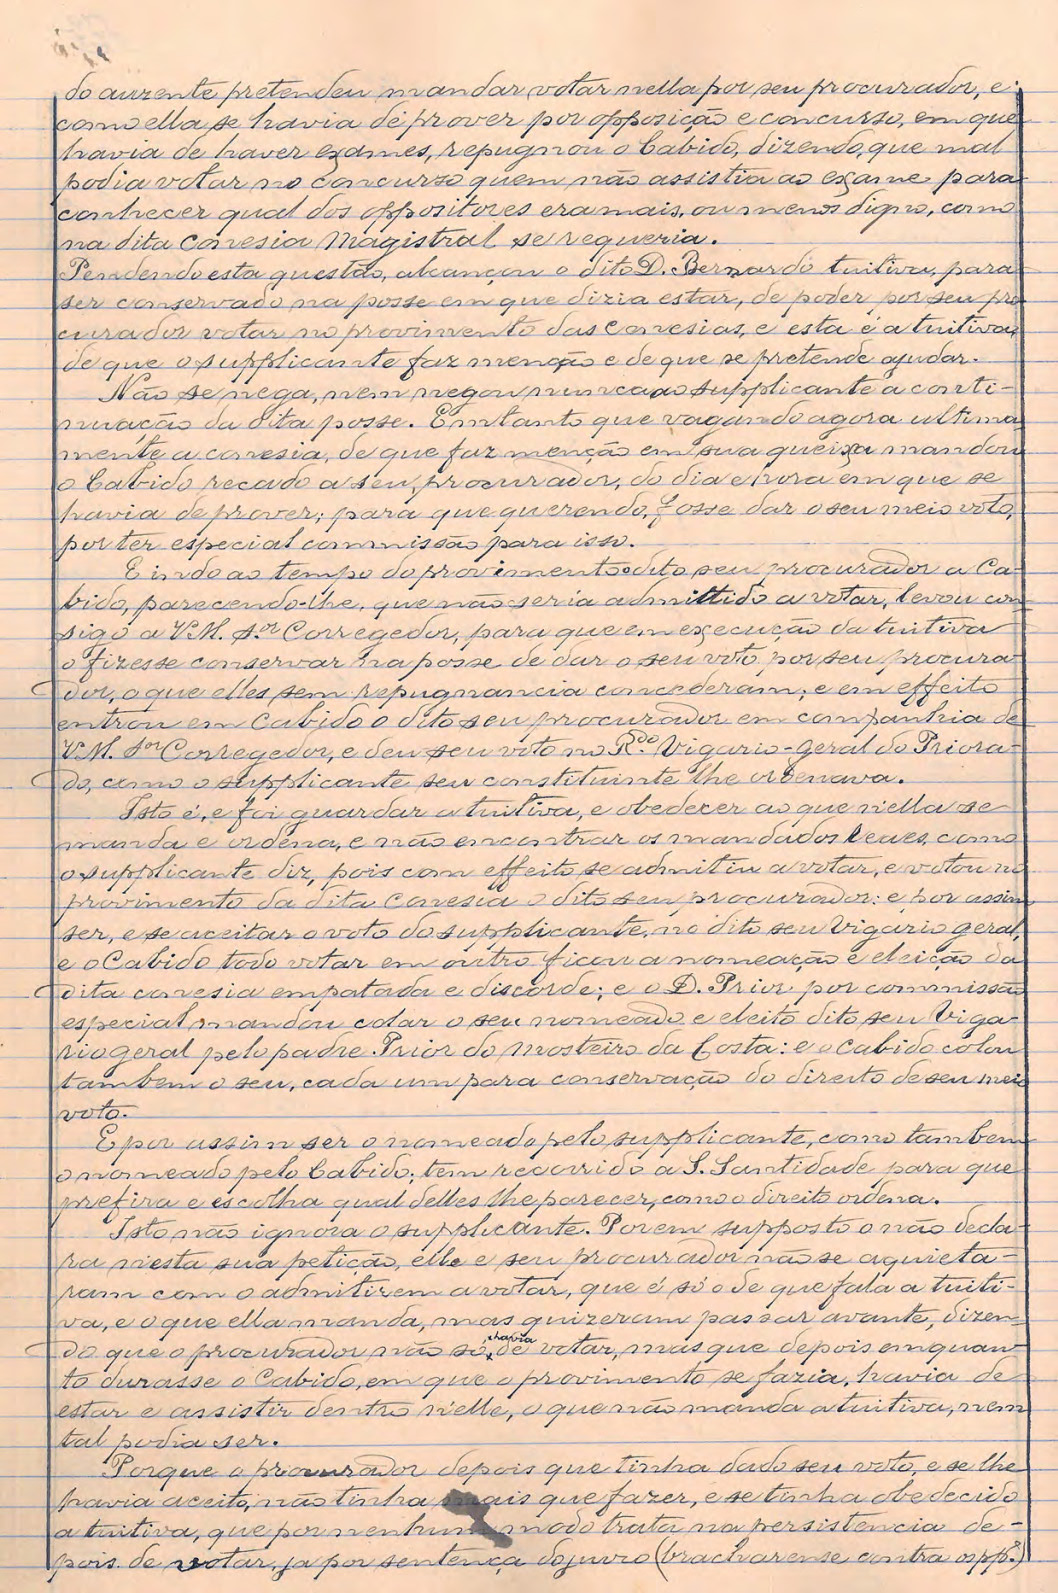 do auzente pretendeu mandar votar nella por seu procurador, e
como ella se havia de prover por opposição e concurso, em que
havia de haver exames, repugnou o Cabido, dizendo, que mal
podia votar no concurso quem não assistia ao exame para
conhecer qual dos oppositores era mais, ou menos digno, como
na dita conesia Magistral se requeria.
Pendendo esta questão, alcançou o dito D. Bernardo tuitiva, para
ser conservado na posse em que dizia estar, de poder por seu pro
curador votar no provimento das conesias, e esta é a tuitiva,
de que o supplicante faz menção e de que se pretende ajudar.
Não se nega, nem negou nunca ao supplicante a conti-
nuação da dita posse. Emtanto que vagando agora ultima
mente a conesia, de que faz menção em sua queixa mandou
o Cabido recado a seu procurador, do dia e hora em que se
havia de prover; para que querendo, fosse dar o seu meio voto,
por ter especial commissão para isso.
E indo ao tempo do provimento o dito seu procurador a Ca-
bido, parecendo-lhe, que não seria admittido a votar, levou con
sigo a V.M. Sor Corregedor, para que em execução da tuitiva
o fizesse conservar na posse de dar o seu voto por seu procura
dor, o que elles sem repugnancia concederam; e em effeito
entrou em Cabido o dito seu procurador em companhia de
V.M. Sor Corregedor, e deu seu voto no Rdo Vigario-geral do Priora-
do, como o supplicante seu constituinte lhe ordenava.
Isto é, e foi guardar a tuitiva, e obedecer ao que n'ella se
manda e ordena, e não encontrar os mandados leaes, como
o supplicante diz, pois com effeito se admitiu a votar, e votou no
provimento da dita conesia o dito seu procurador: e por assim
ser, e se aceitar o voto do supplicante, no dito seu Vigario geral,
e o Cabido todo votar em outro ficou a nomeação e eleição da
dita conesia empatada e discorde; e o D. Prior por commissão
especial mandou colar o seu nomeado e eleito dito seu Viga-
rio geral pelo padre Prior do Mosteiro da Costa: e o Cabido colou
tambem o seu, cada um para conservação do direito de seu meio
voto.
E por assim ser o nomeado pelo supplicante, como tambem
o nomeado pelo Cabido; tem recorrido a S. Santidade para que
prefira e escolha qual delles lhe parecer, como o direito ordena.
Isto não ignora o supplicante. Porem supposto o não decla-
ra n'esta sua petição, elle e seu procurador não se aquieta-
ram com o admitirem a votar, que é só o de que fala a tuiti-
va, e o que ella manda, mas quizeram passar avante, dizen-
do que o procurador não só havia de votar, mas que depois emquan
to durasse o Cabido, em que o provimento se fazia, havia de
estar e assistir dentro n'elle, o que não manda a tuitiva, nem
tal podia ser.
Porque o procurador depois que tinha dado seu voto, e se lhe
havia aceito, não tinha mais que fazer, e se tinha obedecido
a tuitiva, que por nenhum modo trata na persistencia de-
pois de votar, ja por sentença do juizo (bracharense contra o